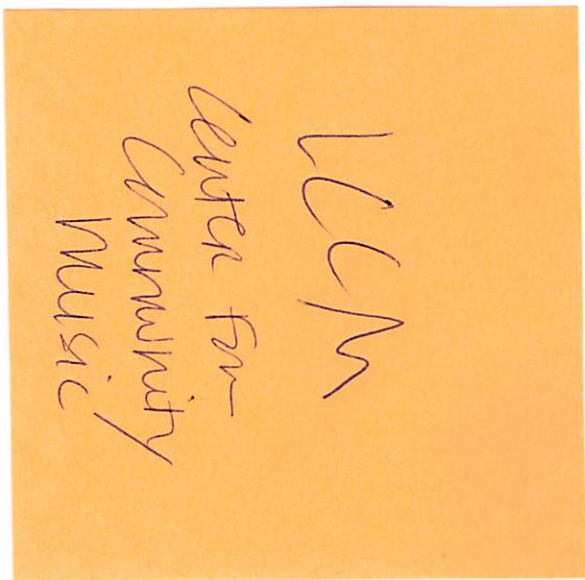 LCCM
Center For
Community
Music